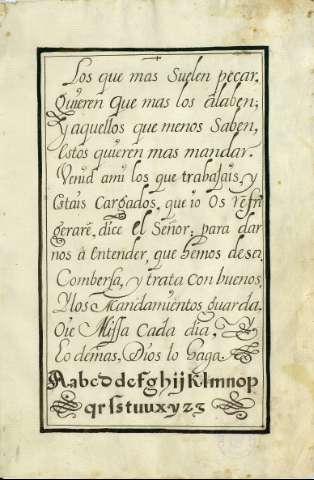 Los que mas Suelen pecar,
Quieren que mas los alaben;
Y aquellos que menos Saben,
Estos quieren mas mandar.
Venid ami los que trabajais, y
Estais Cargados, que io Os refri
gerare, dice el Señor; para dar
nos à Entender, que hemos de sea
Combersa, y trata con buenos
Y los Mandamientos guarda.
Oie Missa Cada dia,
Lo demas, Dios lo haga
A a b c d d e f g h i j k l m n o p
q r ſ s t u u x y z 3